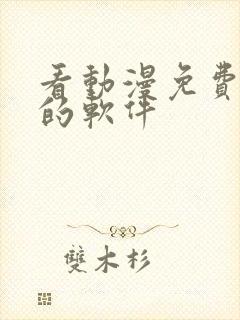 看動漫免費
的軟件
雙木杉